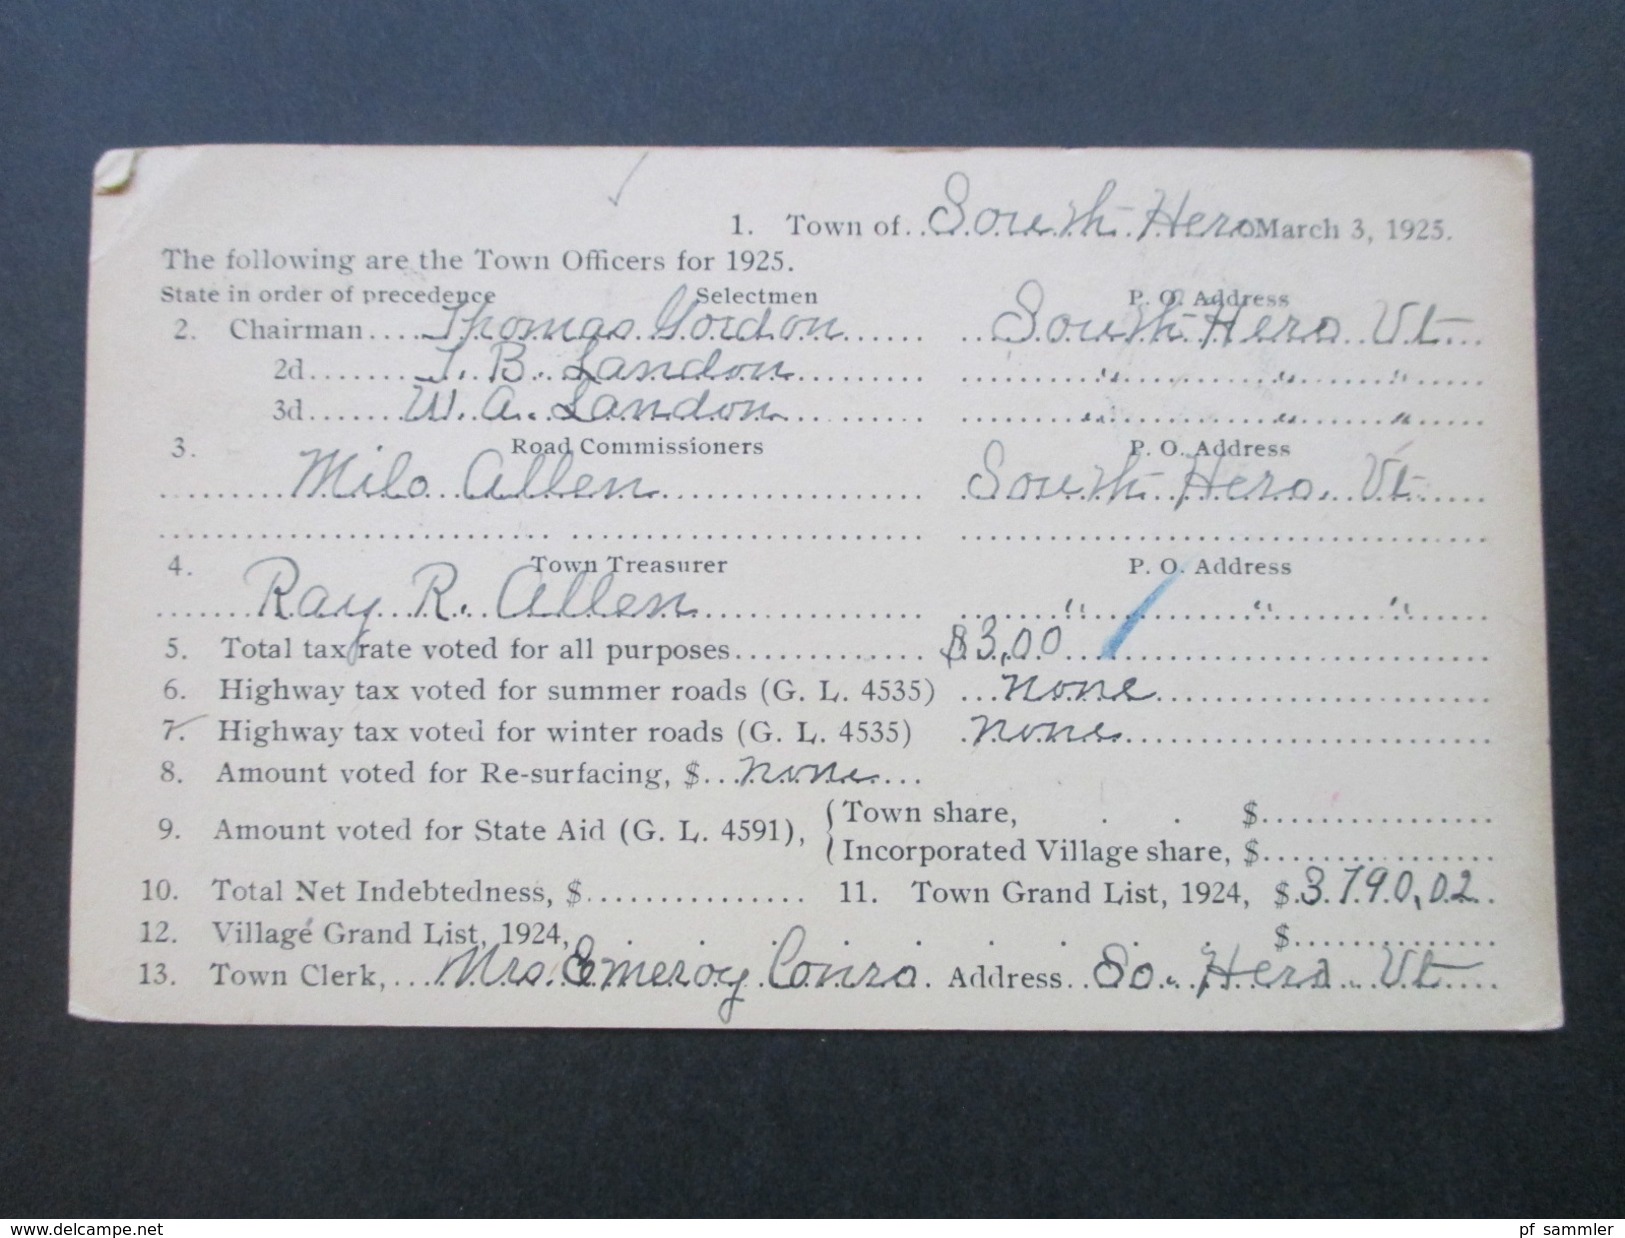 1. Town of South Hero March 3, 1925.
The following are the Town Officers for 1925.
State in order of precedence Selectmen P. O. Address
2. Chairman Thomas Gordon South Hero Vt
2d T. B. Landon " " "
3d W. A. Landon " " "
3. Road Commissioners P. O. Address
Milo Allen South Hero. Vt
4. Town Treasurer P. O. Address
Ray R. Allen " " "
5. Total tax rate voted for all purposes $3.00
6. Highway tax voted for summer roads (G. L. 4535) none
7. Highway tax voted for winter roads (G. L. 4535) none
8. Amount voted for Re-surfacing, $ none
9. Amount voted for State Aid (G. L. 4591), Town share, $
Incorporated Village share, $
10. Total Net Indebtedness, $ 11. Town Grand List, 1924, $ 3790.02
12. Village Grand List, 1924, $
13. Town Clerk, Mrs. Emeroy Conro. Address So. Hero Vt
www.delcampe.net
pf_sammler